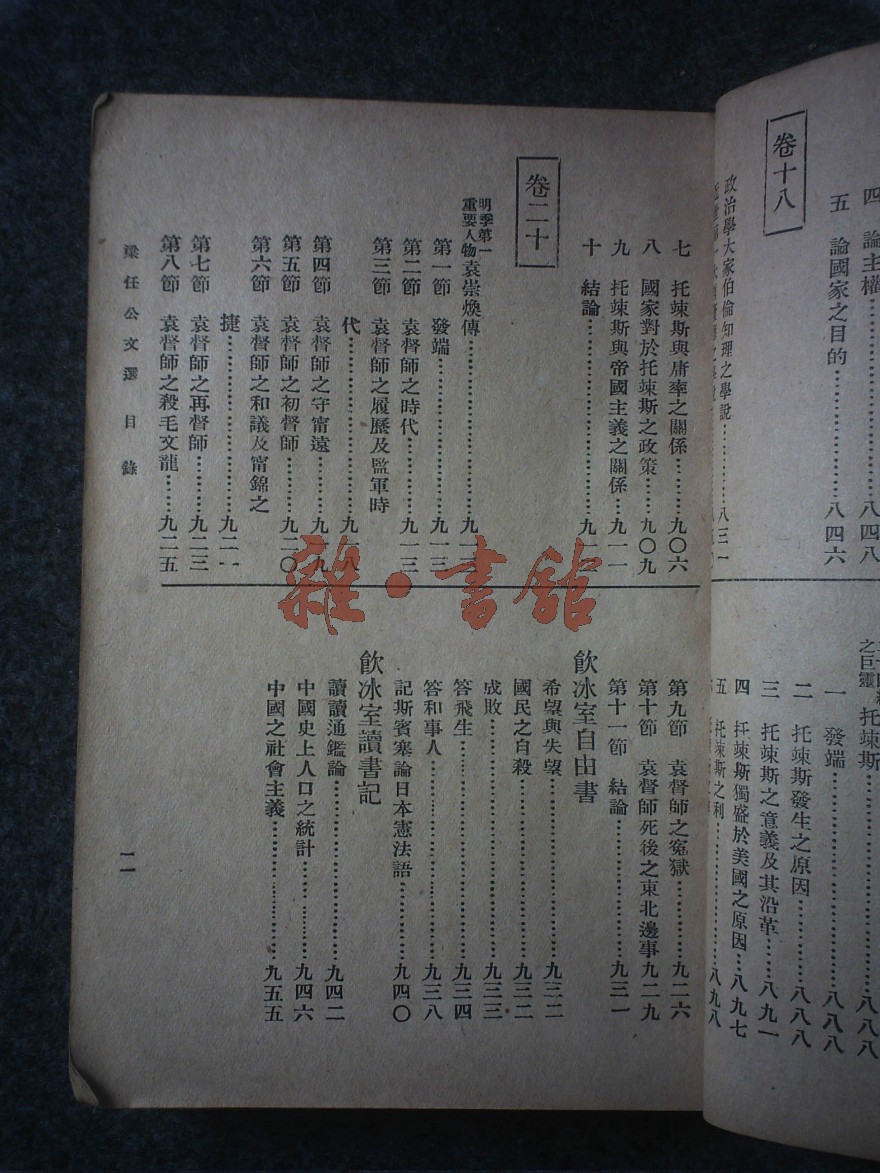 卷十八
四 論主權……八四八
五 論國家之目的……八四六
政治學大家伯倫知理之學說……八三一
之巨靈 托竦斯……八八八
一 發端……八八八
二 托竦斯發生之原因……八八八
三 托竦斯之意義及其沿革……八九一
四 托竦斯獨盛於美國之原因…八九七
五 托竦斯之利……八九八
七 托竦斯與庸率之關係……九〇六
八 國家對於托竦斯之政策……九〇九
九 托竦斯與帝國主義之關係…九一一
十 結論……九一
卷二十
明季第一重要人物袁崇煥傳……九一
第一節 發端……九一三
第二節 袁督師之時代……九一三
第三節 袁督師之履歷及監軍時
代……九一八
第四節 袁督師之守甯遠……九一九
第五節 袁督師之初督師……九二〇
第六節 袁督師之和議及甯錦之
捷……九二一
第七節 袁督師之再督師……九二三
第八節 袁督師之殺毛文龍……九二五
第九節 袁督師之冤獄……九二六
第十節 袁督師死後之東北邊事九二九
第十一節 結論……九三一
飲冰室自由書
希望與失望……九三二
國民之自殺……九三二
成敗……九三三
答飛生……九三四
答和事人……九三八
記斯賓塞論日本憲法語……九四〇
飲冰室讀書記
讀讀通鑑論……九四二
中國史上人口之統計……九四六
中國之社會主義……九五五
梁任公文選 目錄
一一
雜·書館